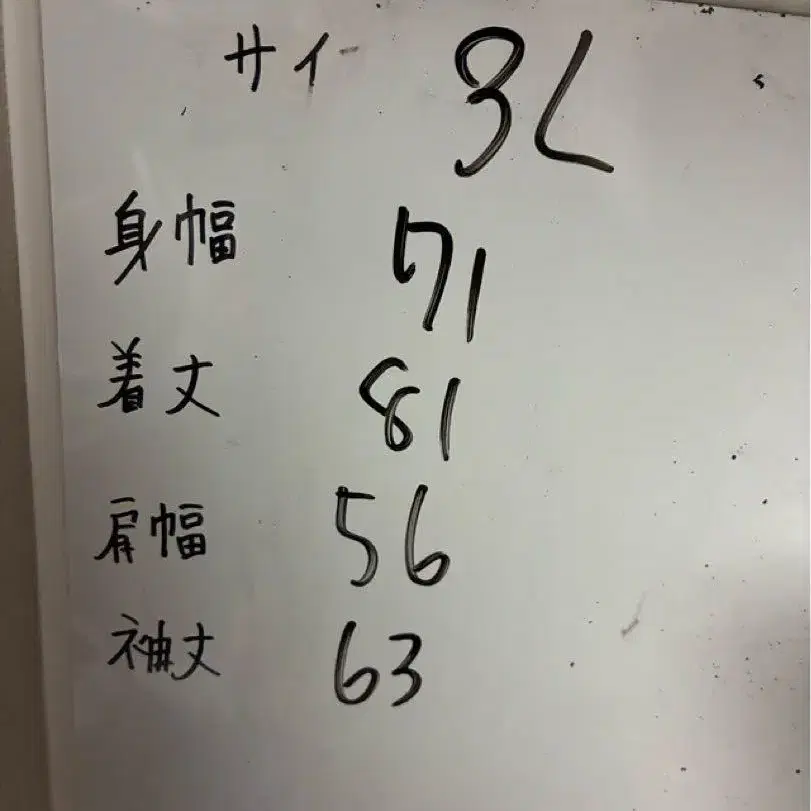 サイ 3L
身幅 71
着丈 81
肩幅 56
袖丈 63